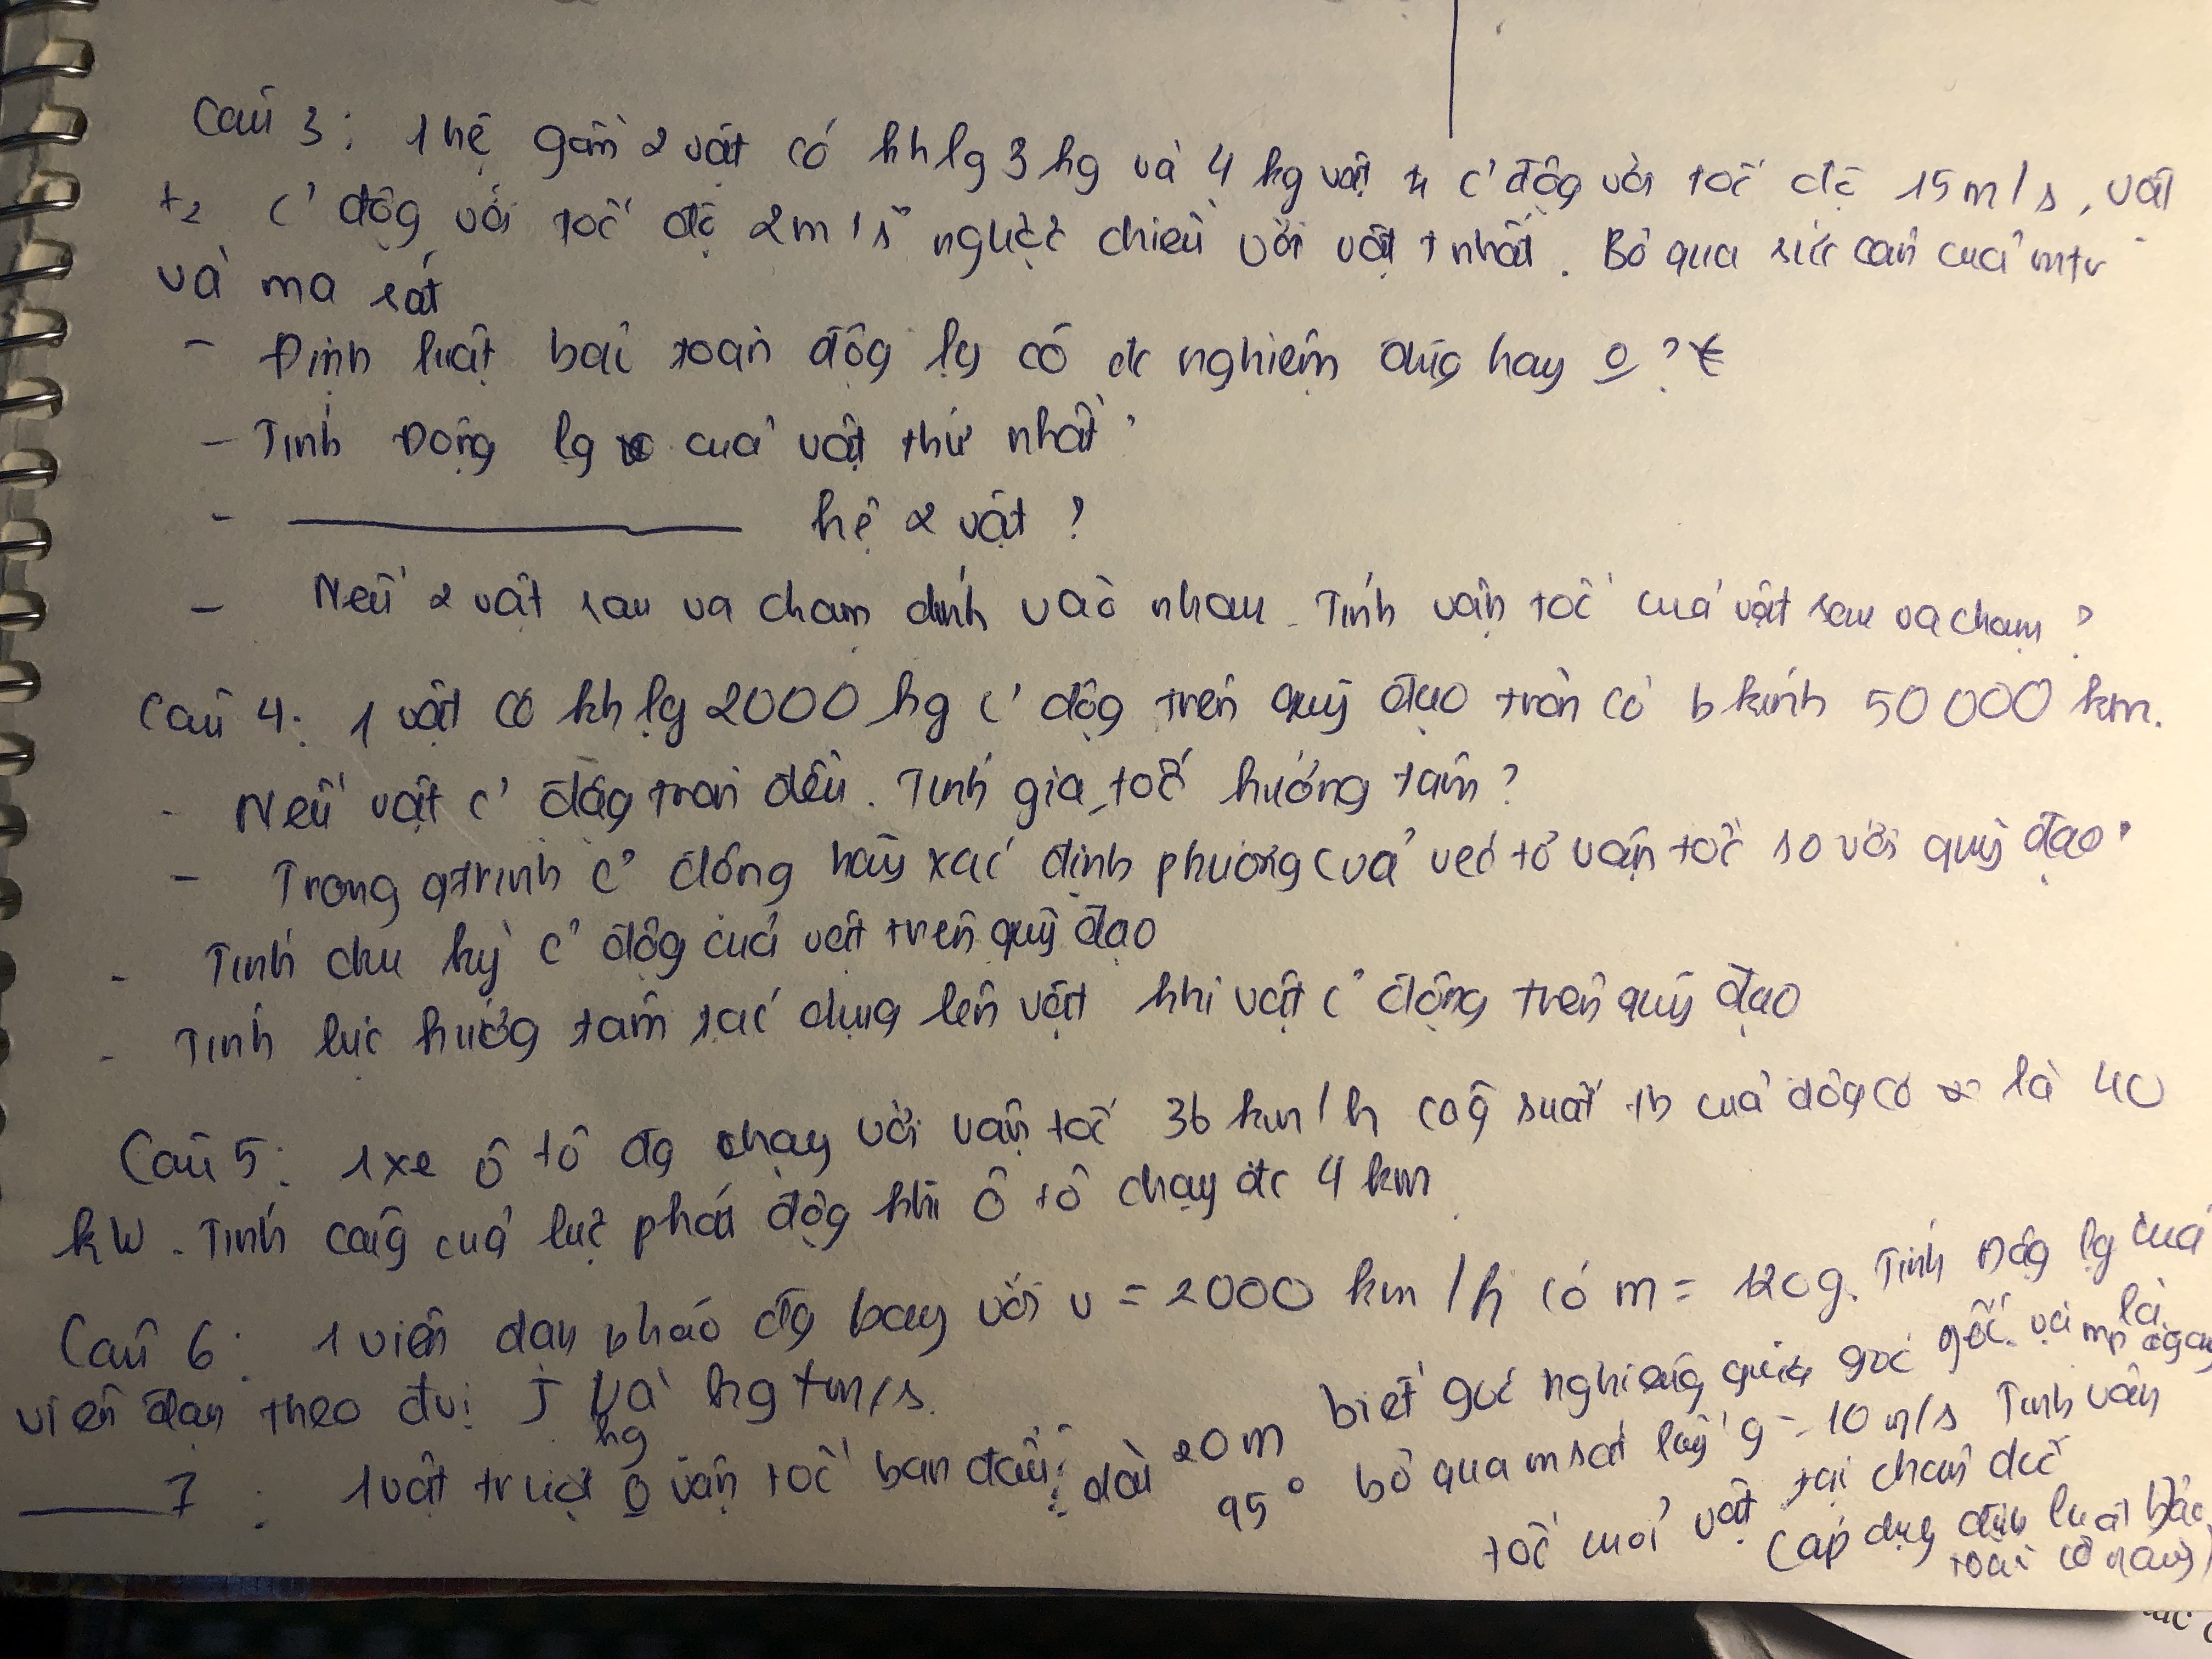 Câu 3: 1 hệ gồm 2 vật có khlg 3 kg và 4 kg vật t1 c' độg với tốc độ 15 m/s, vật
t2 c' độg với tốc độ 2m/s ngược chiều với vật t nhất. Bỏ qua sức cản của mtr
và ma sát
- Định luật bải toàn độg lg có đc nghiệm đúg hay o?
- Tính Động lg của vật thứ nhất?
- hệ 2 vật?
- Nếu 2 vật sau va chạm dính vào nhau. Tính vận tốc của vật sau va chạm?
Câu 4: 1 vật có kh lg 2000 kg c' độg trên quỹ đạo tròn có b kính 50 000 km.
- Nếu vật c' độg tròn đều. Tính gia tốc hướng tâm?
- Trong qtrình c' động hãy xác định phương của véc tơ vận tốc so với quỹ đạo?
- Tính chu kỳ c' độg của vật trên quỹ đạo
- Tính lực hướg tâm tác dụng lên vật khi vật c' động trên quỹ đạo
Câu 5: 1 xe ô tô đg chạy với vận tốc 36 km/h côg suất tb của độg cơ là 40
kW. Tính côg của lực phát độg khi ô tô chạy đc 4 km
Câu 6: 1 viên đạn pháo đg bay với v = 2000 km/h có m = 120g. Tính Độg lg của
viên đạn theo đvị J và kg m/s.
7: 1 vật trượt o vận tốc ban đầu dài 20 m biết góc nghiêng góc dốc và mp ngag là
95° bỏ qua m sát lấy g = 10 m/s Tính vận
tốc của vật tại chân dốc
(áp dụg định luật bảo
toàn cơ năng)